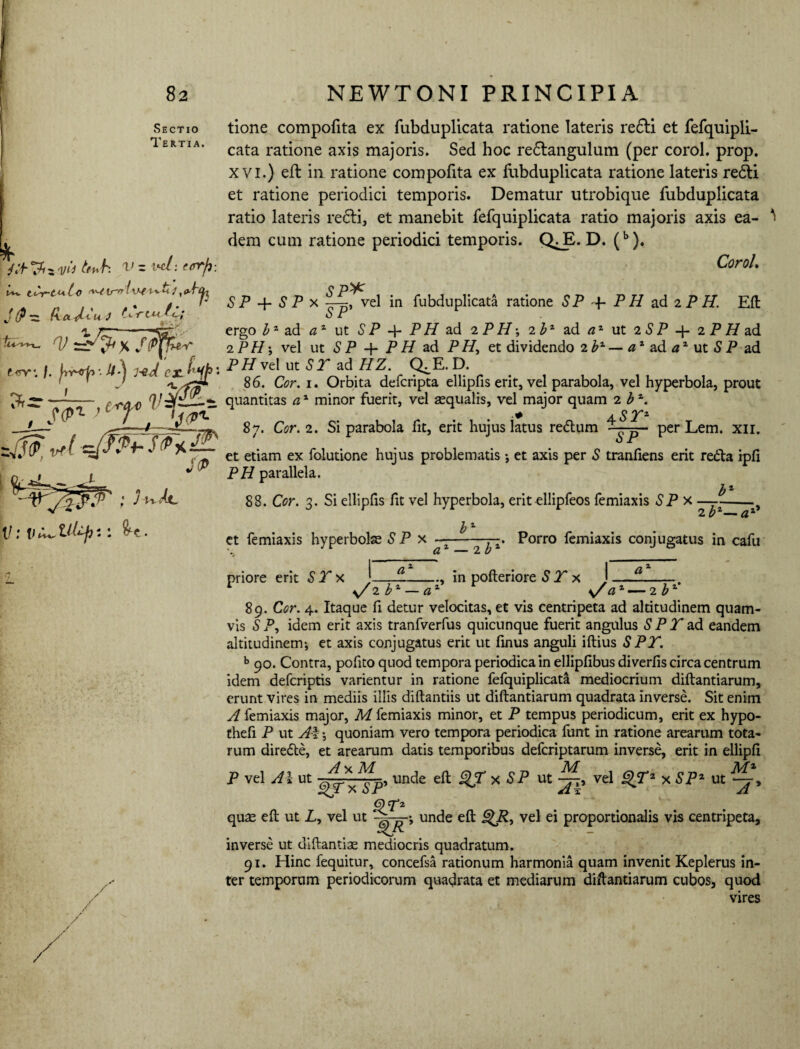 82
NEWTONI PRINCIPIA
Sectio
Tertia.
tione compoſita ex ſubduplicata ratione lateris recti et ſeſquipli-
cata ratione axis majoris. Sed hoc rectangulum (per corol. prop.
XVI.) eſt in ratione compoſita ex ſubduplicata ratione lateris recti
et ratione periodici temporis. Dematur utrobique ſubduplicata
ratio lateris recti, et manebit ſeſquiplicata ratio majoris axis ea-
dem cum ratione periodici temporis. Q.E. D. (ᵇ).
Corol.
SP + SP × SP/SP, vel in ſubduplicatâ ratione SP + PH ad 2 PH. Eſt
ergo b² ad a² ut SP + PH ad 2PH; 2b² ad a² ut 2SP + 2PH ad
2PH; vel ut SP + PH ad PH, et dividendo 2b² — a² ad a² ut SP ad
PH vel ut ST ad HZ. Q.E. D.
86. Cor. 1. Orbita deſcripta ellipſis erit, vel parabola, vel hyperbola, prout
quantitas a² minor fuerit, vel æqualis, vel major quam 2 b².
87. Cor. 2. Si parabola ſit, erit hujus latus rectum 4ST²/SP per Lem. XII.
et etiam ex ſolutione hujus problematis; et axis per S tranſiens erit recta ipſi
PH parallela.
88. Cor. 3. Si ellipſis ſit vel hyperbola, erit ellipſeos ſemiaxis SP × b²/2b²—a²,
et ſemiaxis hyperbolæ SP × b²/a² — 2b². Porro ſemiaxis conjugatus in caſu
priore erit ST × √a²/2b² — a², in poſteriore ST × √a²/a² — 2b².
89. Cor. 4. Itaque ſi detur velocitas, et vis centripeta ad altitudinem quam-
vis SP, idem erit axis tranſverſus quicunque fuerit angulus SPT ad eandem
altitudinem; et axis conjugatus erit ut ſinus anguli iſtius SPT.
ᵇ 90. Contra, poſito quod tempora periodica in ellipſibus diverſis circa centrum
idem deſcriptis varientur in ratione ſeſquiplicatâ mediocrium diſtantiarum,
erunt vires in mediis illis diſtantiis ut diſtantiarum quadrata inverſè. Sit enim
A ſemiaxis major, M ſemiaxis minor, et P tempus periodicum, erit ex hypo-
theſi P ut A³⁄₂; quoniam vero tempora periodica ſunt in ratione arearum tota-
rum directè, et arearum datis temporibus deſcriptarum inverſè, erit in ellipſi
P vel A³⁄₂ ut A × M/QT × SP, unde eſt QT × SP ut M/A½, vel QT² × SP² ut M²/A,
quæ eſt ut L, vel ut QT²/QR; unde eſt QR, vel ei proportionalis vis centripeta,
inverſè ut diſtantiæ mediocris quadratum.
91. Hinc ſequitur, conceſsâ rationum harmoniâ quam invenit Keplerus in-
ter temporum periodicorum quadrata et mediarum diſtantiarum cubos, quod
vires